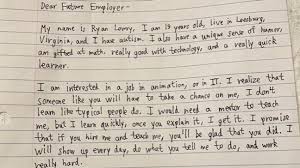 Dear Future Employer-
My name is Ryan Lowry, I am 19 years old, live in Leesburg,
Virginia, and I have autism. I also have a unique sense of humor,
am gifted at math, really good with technology, and a really quick
learner.
I am interested in a job in animation, or in IT. I realize that
someone like you will have to take a chance on me, I don't
learn like typical people do. I would need a mentor to teach
me, but I learn quickly, once you explain it, I get it. I promise
that if you hire me and teach me, you'll be glad that you did. I will
show up every day, do what you tell me to do, and work
really hard.